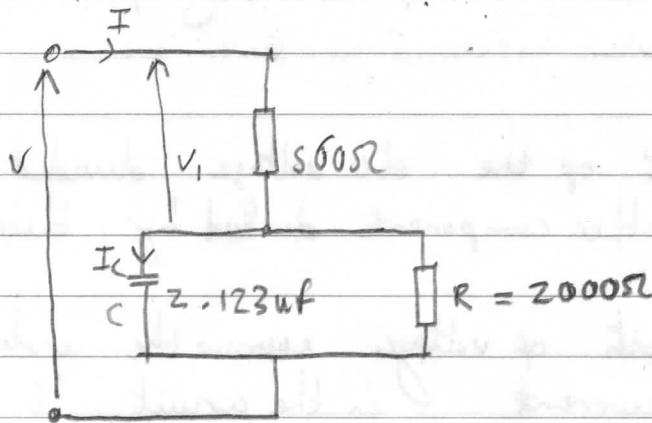 I
V
V₁
560Ω
Ic
C 2.123uf
R = 2000Ω